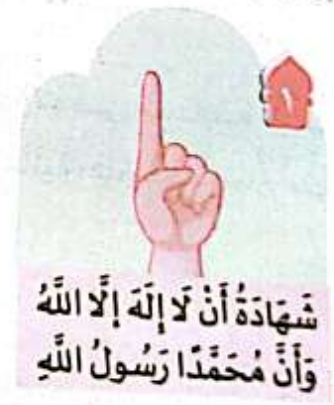 ١
شَهَادَةُ أَنْ لَا إِلَهَ إِلَّا اللَّهُ
وَأَنَّ مُحَمَّدًا رَسُولُ اللَّهِ